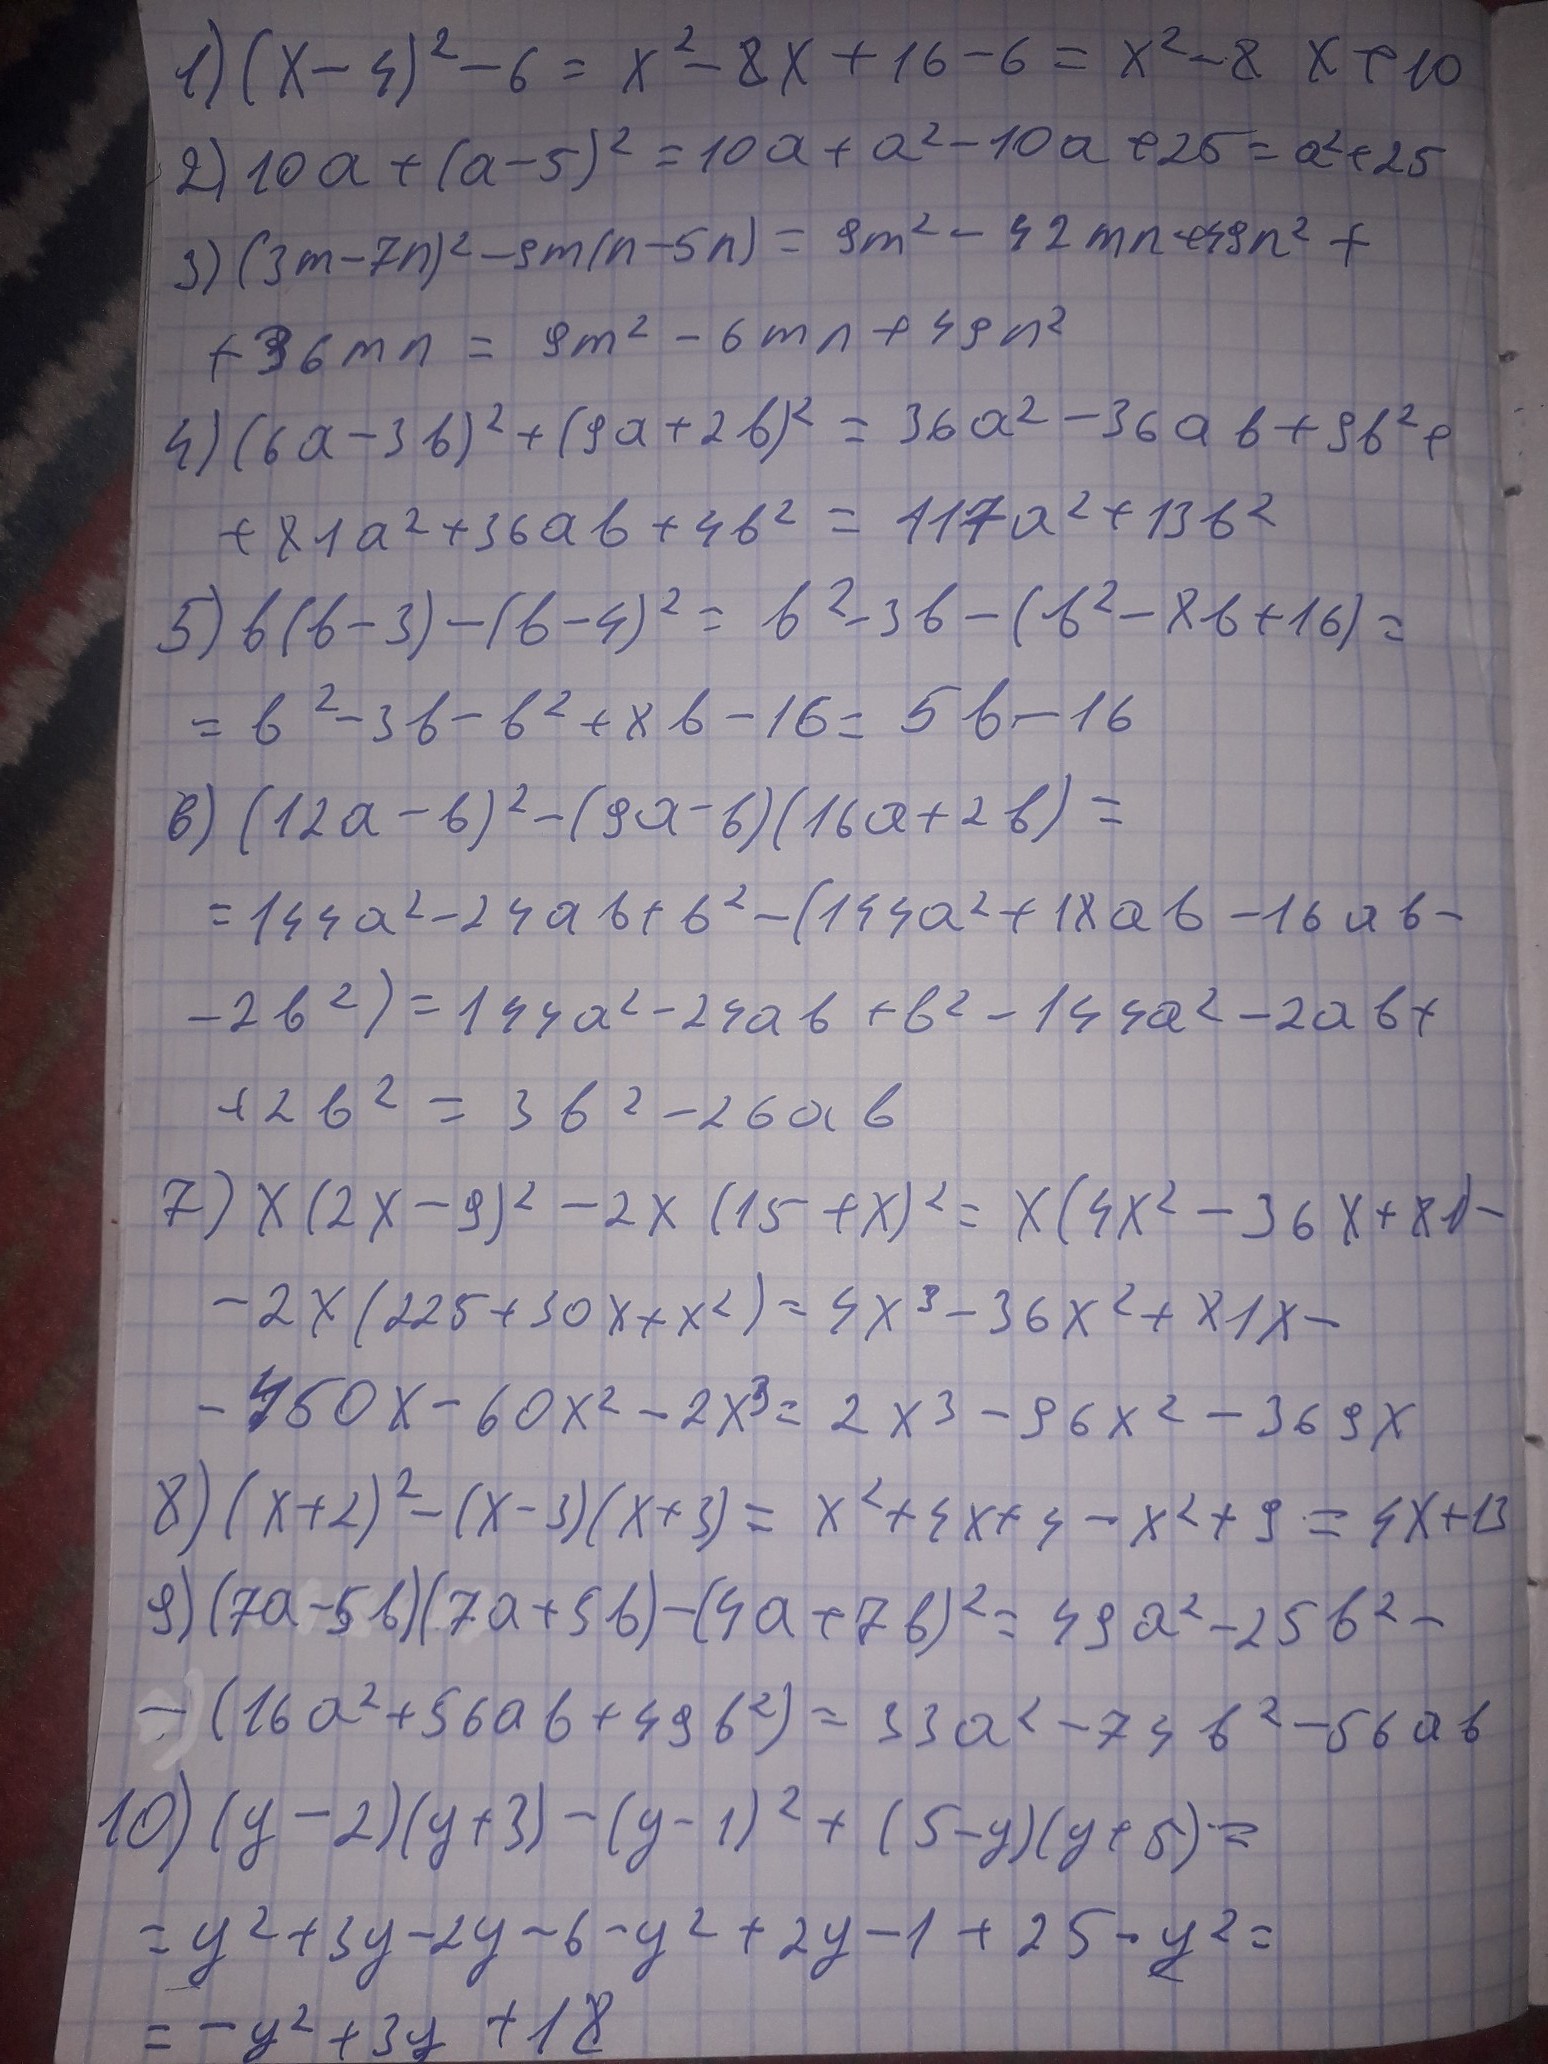 1) (x-4)²-6 = x²-8x+16-6 = x²-8 x+10
2) 10a+(a-5)² = 10a+a²-10a+25 = a²+25
3) (3m-7n)²-9m(n-5n) = 9m²-42mn+49n²+
+36mn = 9m²-6mn+49n²
4) (6a-3b)²+(9a+2b)² = 36a²-36ab+9b²+
+81a²+36ab+4b² = 117a²+13b²
5) b(b-3)-(b-4)² = b²-3b-(b²-8b+16) =
= b²-3b-b²+8b-16 = 5b-16
6) (12a-b)²-(9a-b)(16a+2b) =
= 144a²-24ab+b²-(144a²+18ab-16ab-
-2b²) = 144a²-24ab+b²-144a²-2ab+
+2b² = 3b²-26ab
7) x(2x-9)²-2x(15+x)² = x(4x²-36x+81)-
-2x(225+30x+x²) = 4x³-36x²+81x-
-450x-60x²-2x³ = 2x³-96x²-369x
8) (x+2)²-(x-3)(x+3) = x²+4x+4-x²+9 = 4x+13
9) (7a-5b)(7a+5b)-(4a+7b)² = 49a²-25b²-
-(16a²+56ab+49b²) = 33a²-74b²-56ab
10) (y-2)(y+3)-(y-1)²+(5-y)(y+5) =
= y²+3y-2y-6-y²+2y-1+25-y² =
= -y²+3y+18